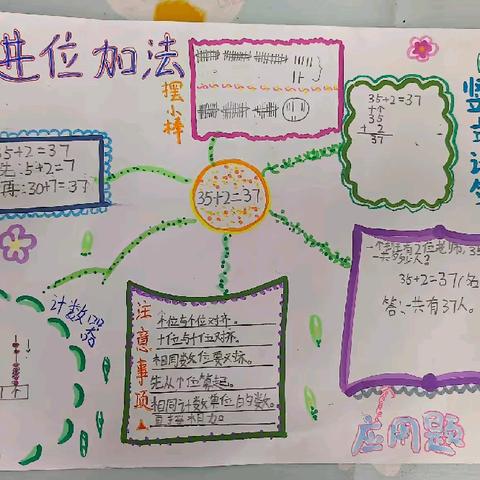 进位加法
摆小棒
35+2=37
十个
35
+ 2
37
竖式计算
35+2=37
先:5+2=7
再:30+7=37
35+2=37
一共多少人?
35+2=37(名)
答:一共有37人。
应用题
计数器
注意事项
个位与个位对齐.
十位与十位对齐.
相同数位要对齐.
先从个位算起.
相同计数单位的数,
直接相加.